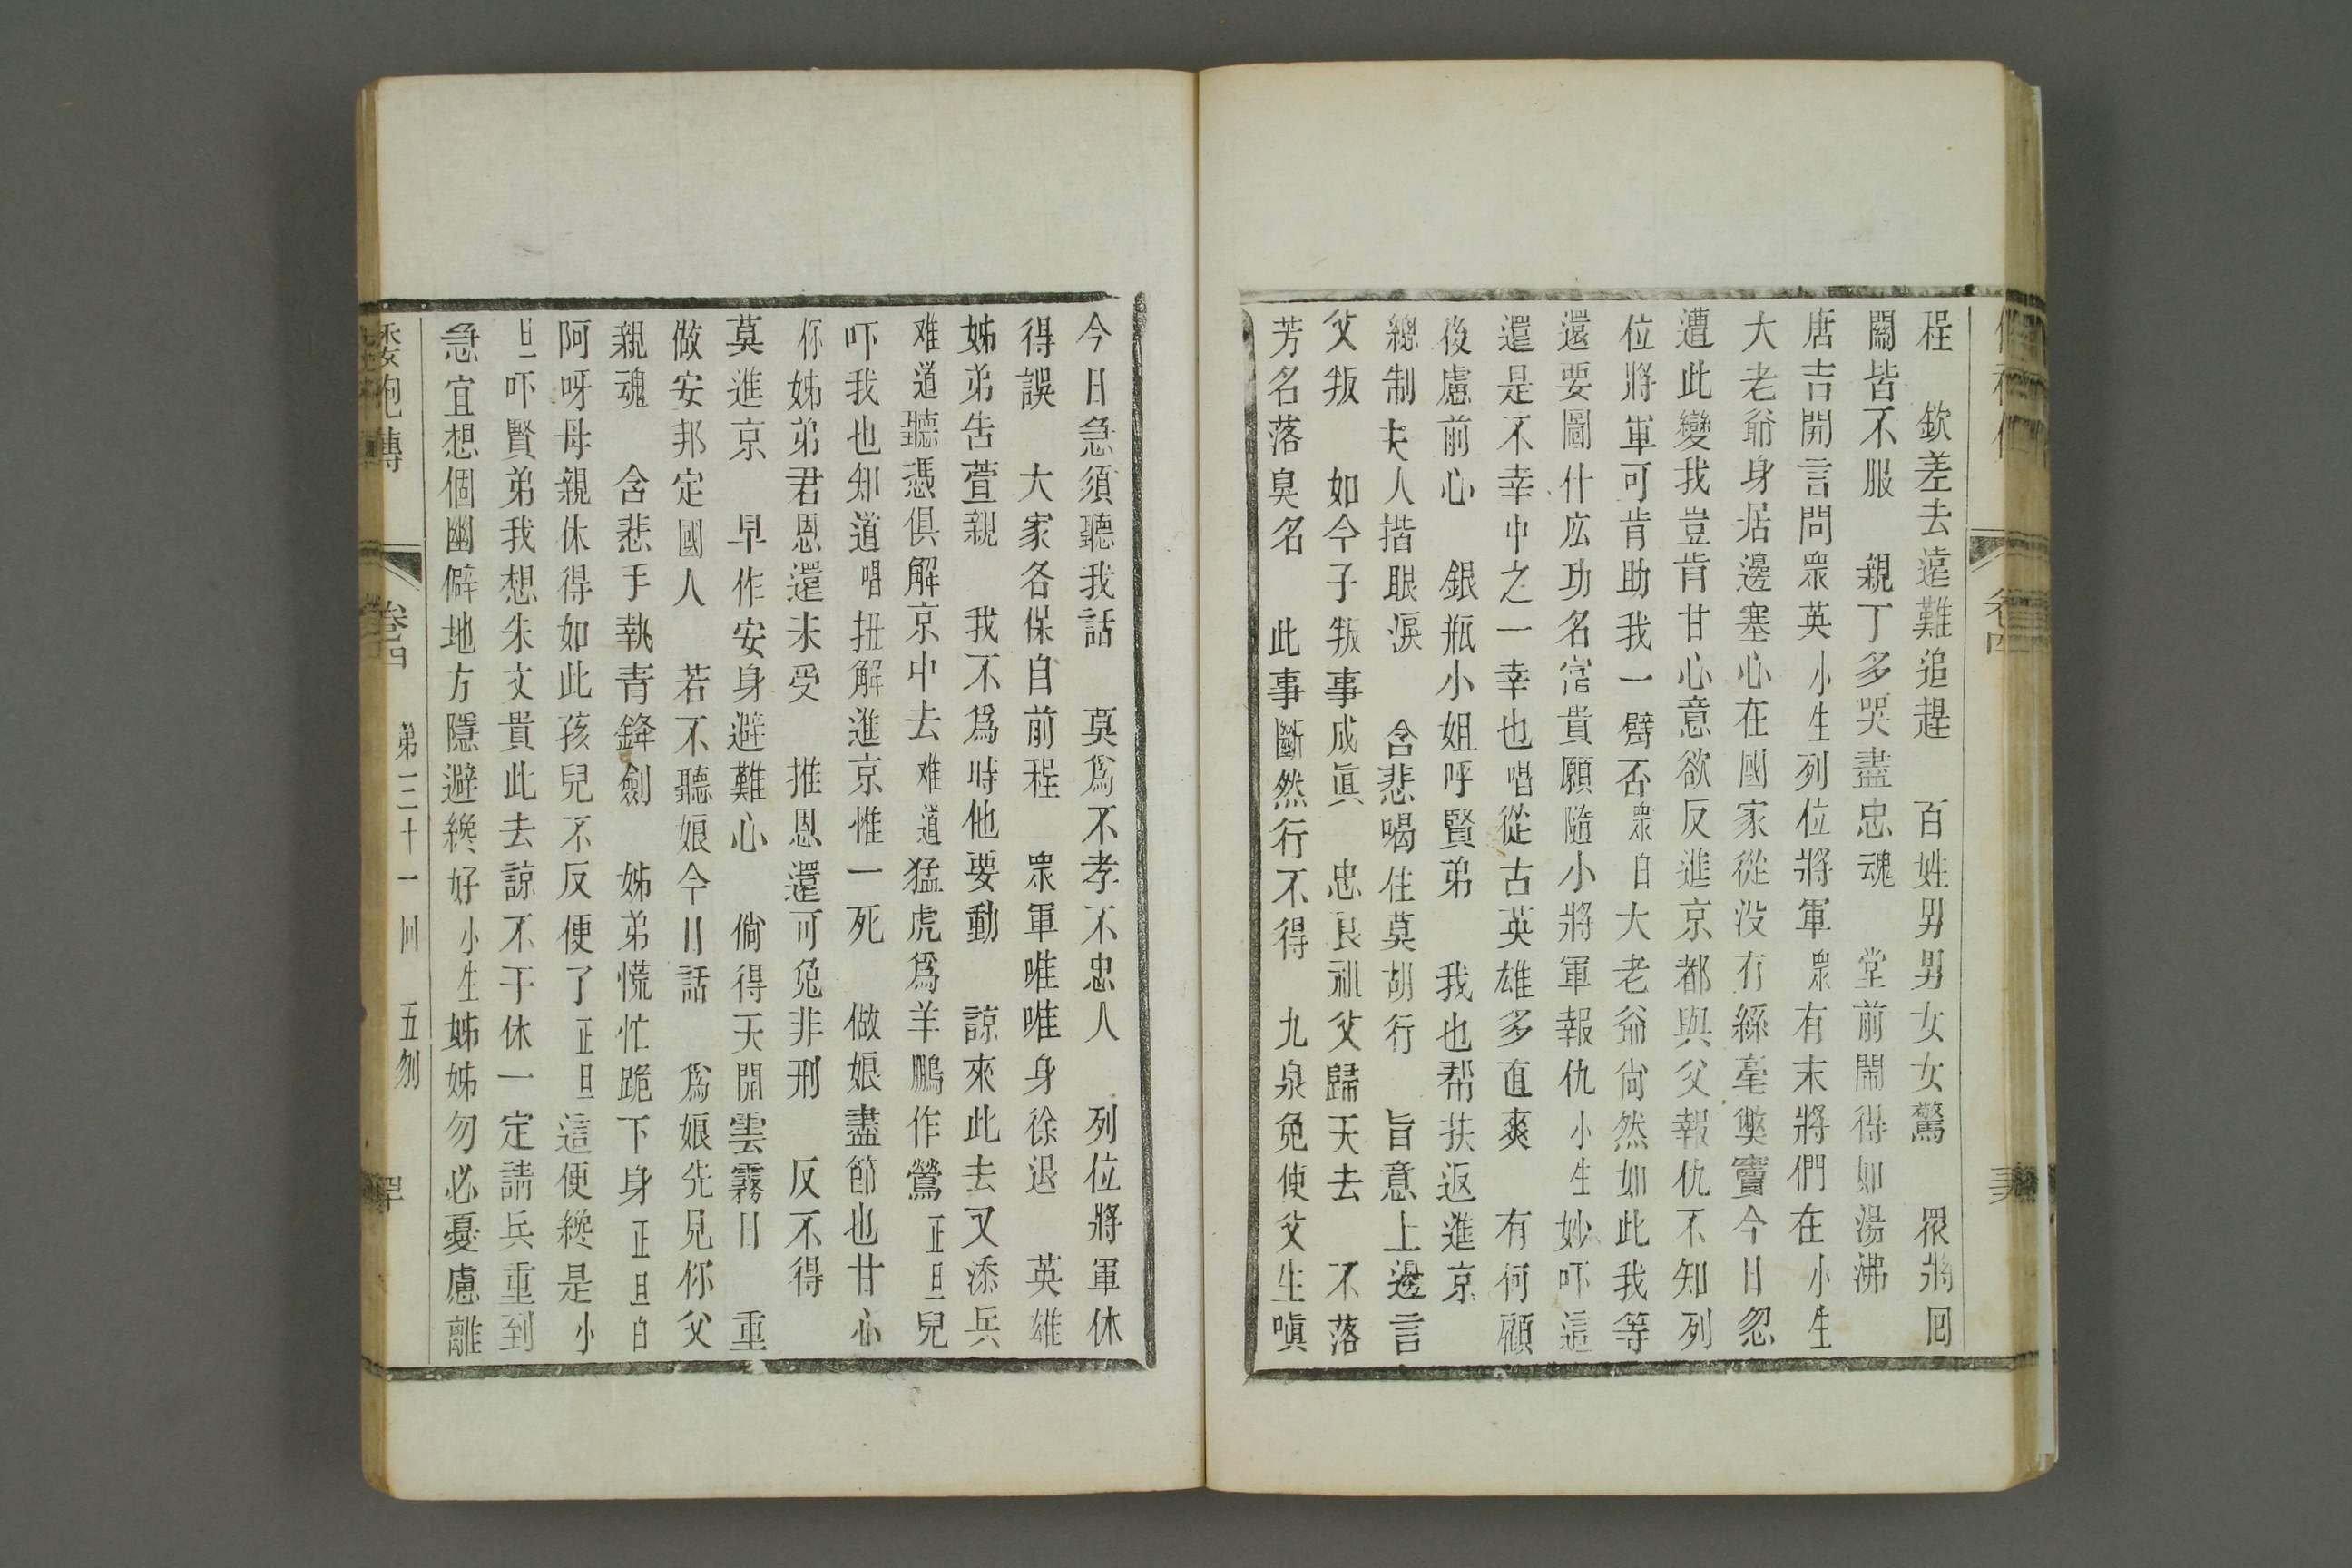 程　欽差去遠難追趕　百姓男男女女驚　眾將回
關皆不服　親丁多哭盡忠魂　堂前鬧得如湯沸
唐吉開言問眾英小生列位將軍眾有末將們在小生
大老爺身居邊塞心在國家從没有絲毫獘竇今日忽
遭此變我豈肯甘心意欲反進京都與父報仇不知列
位將軍可肯助我一臂否眾白大老爺尙然如此我等
還要圖什庅功名富貴願隨小將軍報仇小生妙吓這
還是不幸中之一幸也唱從古英雄多直爽　有何顧
後慮前心　銀瓶小姐呼賢弟　我也帮扶返進京
總制夫人揩眼淚　含悲喝住莫胡行　旨意上邊言
父叛　如今子叛事成眞　忠良祖父歸天去　不落
芳名落臭名　此事斷然行不得　九泉免使父生嗔
今日急須聽我話　莫爲不孝不忠人　列位將軍休
得誤　大家各保自前程　眾軍唯唯身徐退　英雄
姊弟告萱親　我不爲時他要動　諒來此去又添兵
难道聽憑俱解京中去难道猛虎爲羊鵬作鶯正旦兒
吓我也知道唱扭解進京惟一死　做娘盡節也甘心
你姊弟君恩還未受　推恩還可免非刑　反不得
莫進京　早作安身避難心　倘得天開雲霧日　重
做安邦定國人　若不聽娘今日話　爲娘先見你父
親魂　含悲手執青鋒劍　姊弟慌忙跪下身正旦白
阿呀母親休得如此孩兒不反便了正旦這便纔是小
旦吓賢弟我想朱文貴此去諒不干休一定請兵重到
急宜想個幽僻地方隱避纔好小生姊姊勿必憂慮離
袍傳　卷四　第三十一回　五刻